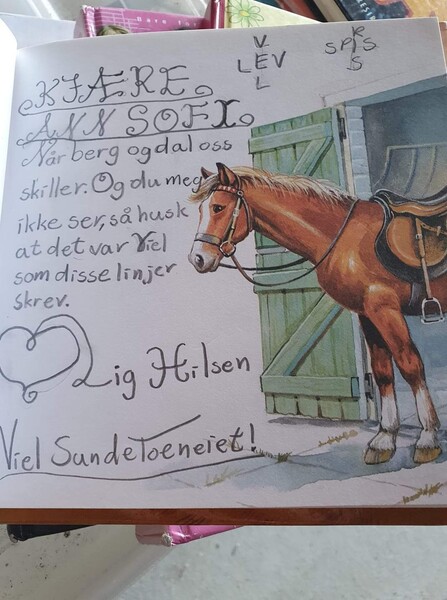 VEL
LEV
RIS
SPIS
KJÆRE
ANN SOFI
Når berg og dal oss
skiller. Og du meg
ikke ser, så husk
at det var Viel
som disse linjer
skrev.
Lig Hilsen
Viel Sunde Toeneiet!